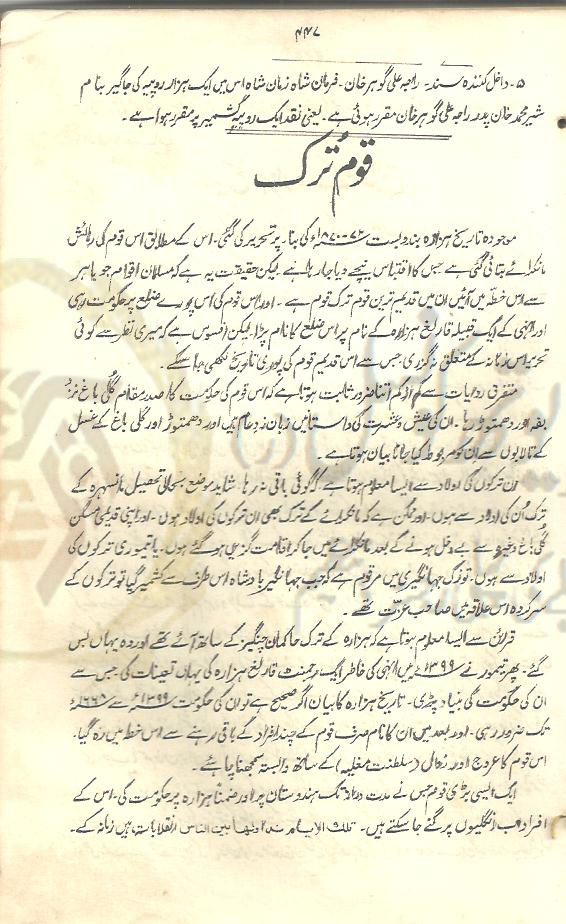 ۴۴۷
۵۔ داخل کنندہ سند۔ راجہ علی گوہر خان۔ فرمان شاہ زمان شاہ اس میں ایک ہزار روپیہ کی جاگیر بنام
شیر محمد خان پدر راجہ علی گوہر خان مقرر ہوئی ہے۔ یعنی نقد ایک روپیہ کشمیر پر مقرر ہوا ہے۔
قوم تُرک
موجودہ تاریخ ہزارہ بندوبست ۷۲-۱۸۷۰ء کی بناء پر تحریر کی گئی۔ اس کے مطابق اس قوم کی رہائش
مانکرائے بتائی گئی ہے جس کا اقتباس نیچے دیا جا رہا ہے لیکن حقیقت یہ ہے کہ مسلمان اقوام جو باہر
سے اس خطہ میں آئیں ان میں قدیم ترین قوم ترک قوم ہے۔ اور اس قوم کی اس پورے ضلع پر حکومت رہی
اور انہی کے ایک قبیلہ قارلغ ہزارہ کے نام پر اس ضلع کا نام پڑا۔ لیکن افسوس ہے کہ میری نظر سے کوئی
تحریر اس زمانہ کے متعلق نہ گزری جس سے اس قدیم قوم کی پوری تاریخ لکھی جا سکے۔
متفرق روایات سے کم از کم اتنا ضرور ثابت ہوتا ہے کہ اس قوم کی حکومت کا صدر مقام گُلی باغ نزد
بفہ اور دھمتوڑ رہا۔ ان کی عیش و عشرت کی داستانیں زبان زد عام ہیں اور دھمتوڑ اور گلی باغ کے غسل
کے تالابوں سے ان کو مربوط کیا جانا بیان ہوتا ہے۔
ان ترکوں کی اولاد سے ایسا معلوم ہوتا ہے کہ کوئی باقی نہ رہا۔ شاید موضع بھجالی تحصیل مانسہرہ کے
ترک اُن کی اولاد سے ہوں۔ اور ممکن ہے کہ مانکرائے کے ترک بھی ان ترکوں کی اولاد ہوں۔ اور اپنی قدیمی مسکن
گُلی باغ وغیرہ سے بے دخل ہونے کے بعد مانکرائے میں جا کر اقامت گزیں ہو گئے ہوں۔ یا تیموری ترکوں کی
اولاد سے ہوں۔ توزک جہانگیری میں مرقوم ہے کہ جب جہانگیر بادشاہ اس طرف سے کشمیر گیا تو ترکوں کے
سرکردہ اس علاقہ میں صاحب عزّت تھے۔
قرائن سے ایسا معلوم ہوتا ہے کہ ہزارہ کے ترک حاکمان چنگیز کے ساتھ آئے تھے اور وہ یہاں بس
گئے۔ پھر تیمور نے ۱۳۹۹ء میں انہی کی خاطر ایک رجمنٹ قارلغ ہزارہ کی یہاں تعینات کی جس سے
ان کی حکومت کی بنیاد پڑی۔ تاریخ ہزارہ کا بیان اگر صحیح ہے تو ان کی حکومت ۱۳۹۹ء سے ۱۶۶۸ء
تک ضرور رہی۔ اور بعد میں ان کا نام صرف قوم کے چند افراد کے باقی رہنے سے اس خطہ میں رہ گیا۔
اس قوم کا عروج اور زوال (سلطنت مغلیہ) کے ساتھ وابستہ سمجھنا چاہئے۔
ایک ایسی بڑی قوم جس نے مدت دراز تک ہندوستان پر اور ضمناً ہزارہ پر حکومت کی۔ اس کے
افراد اب انگلیوں پر گنے جا سکتے ہیں۔ تلك الايام نداولها بين الناس انقلابات ہیں زمانہ کے۔